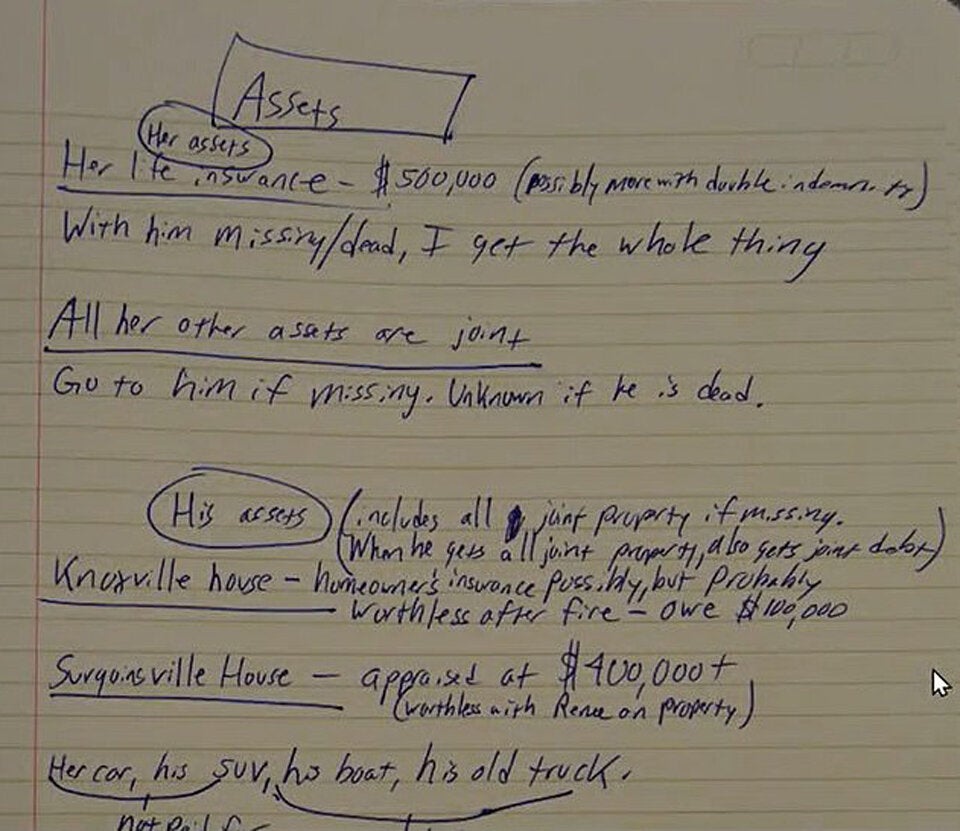 Assets
Her assets
Her life insurance - $500,000 (possibly more with double indemnity)
With him missing/dead, I get the whole thing
All her other assets are joint
Go to him if missing. Unknown if he is dead.
His assets (includes all joint property if missing.
(When he gets all joint property, also gets joint debt)
Knoxville house - homeowner's insurance possibly, but probably
worthless after fire - owe $100,000
Surgoinsville House - appraised at $400,000+
(worthless with Renee on property)
Her car, his SUV, his boat, his old truck.
not paid